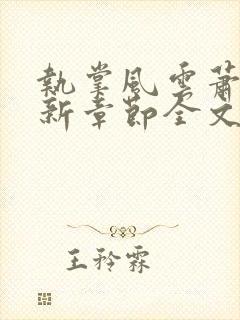 執掌風雲蕭
新章節全文
王矜霖